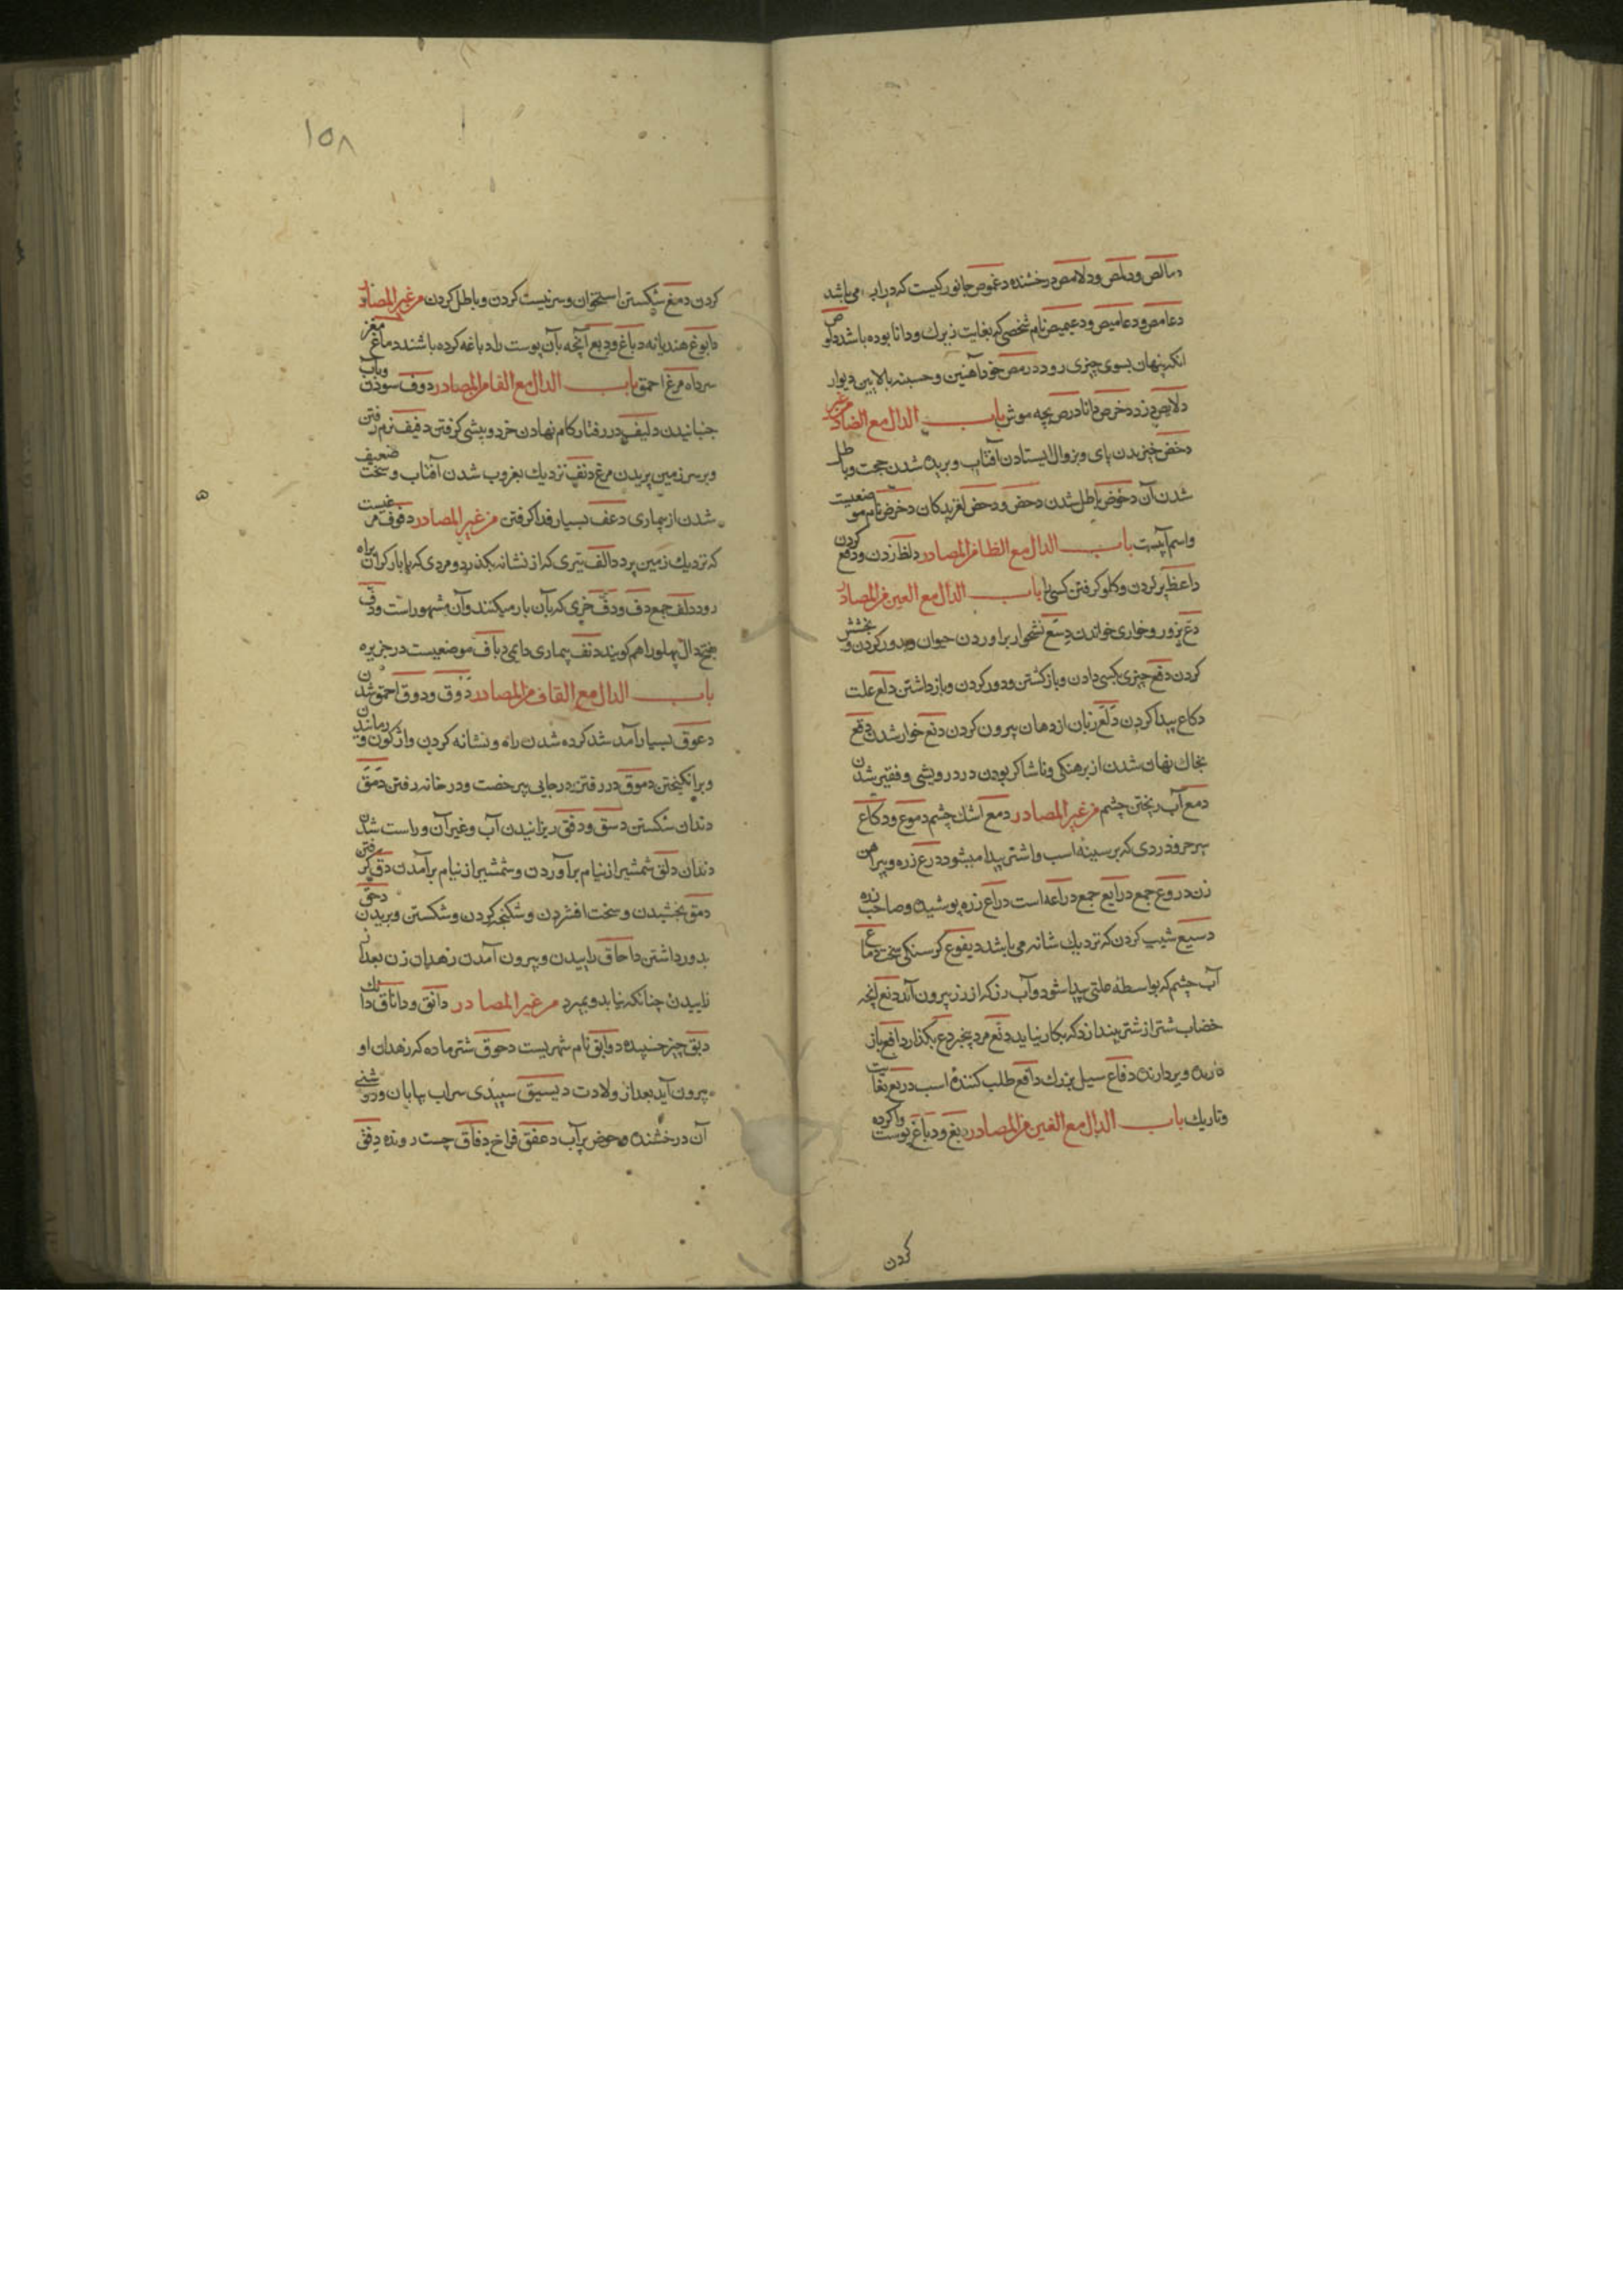 دمالص ودملص ودلامص درخشنده دعموص جانور کیست که در اب می باشد
دعامص ودعامیص ودعیمیص نام شخصی که بغایت زیرك ودانا بوده باشد دلوص
انکه پنهان بسوی چیزی رود درمص خود آهنین و بالایین دیوار
دلایص دزد دخرص دانا درص بچه موش باب الدال مع الضاد من غیر
دخض خیزیدن پای وبزوال ایستادن آفتاب وبریده شدن حجت وباطل
شدن آن دحوض باطل شدن دحض ودحض لغزیدکان دخرض نام موضعیست
واسم آبیست باب الدال مع الظا من المصادر دلظ زدن ودفع کردن
داعظ پر کردن وکلو کرفتن کسی را باب الدال مع العین من المصادر
دع بزور وخواری خواندن دسع نشخوار براوردن حیوان ودور کردن وبخشش
کردن دفع چیزی بکسی دادن وبازکشتن ودور کردن وبازداشتن دلع علت
دکاع پیدا کردن دلع زبان از دهان بیرون کردن دنع خوار شدن دقع
بخاك نهان شدن از برهنکی وناشاکر بودن در درویشی وفقیر شدن
دمع آب ریختن چشم من غیر المصادر دمع اشك چشم دموع ودکاع
سرخه ودردی که بر سینه اسب واشتر پیدا میشود درع زره وپیراهن
زن دروع جمع درایع جمع دراعه است دراع زره پوشیده وصاحب زره
دسیع شیب کردن که نزدیك شانه می باشد دیقوع کرسنکی سخت دماع
آب چشم که بواسطه علتی پیدا شود وآب رز که از رز بیرون آید دنع آنچه
خضاب شتر از شتر بیندازد که بکار نیاید دنع مرد بیخرد دع بکذار دافع باز
دارنده وبردارنده دفاع سیل بزرك داقع طلب کننده اسب دریع بغایت
وتاریك باب الدال مع الغین من المصادر دبغ ودباغ پوست واکرده
کردن
١٥٨
کردن دمغ شکستن استخوان وسر نیست کردن وباطل کردن من غیر المصادر
دابوغ هندیانه دباغ ودبغ آنچه بآن پوست را دباغه کرده باشند دماغ مغز
سر داه مرغ احمق باب الدال مع الفا من المصادر دوف سودن وبآب
جنبانیدن دلیف در رفتار کام نهادن خرد وپیشی کرفتن دفیف نرم رفتن
وبر سر زمین پریدن مرغ دنف نزدیك بغروب شدن آفتاب وسخت ضعیف
شدن از بیماری دعف بسیار فدا کرفتن من غیر المصادر دفوف مرغیست
که نزدیك زمین پرد دالف تیری که از نشانه بکذرد ومردی که با بار کران براه
رود دلف جمع دف ودف خری که بآن بار میکنند وآن مشهور است ودف
بفتح دال پهلو را هم کویند دنف بیماری دایمی دباف موضعیست در جزیره
باب الدال مع القاف من المصادر دوق ودوق احمق شدن
دعوق بسیار آمد شد کرده شدن راه ونشانه کردن واژکون ورمانیدن
وبرانکیختن دموق در رفتن در جایی بی رخصت ودر خانه رفتن دمق
دندان شکستن دسق ودفق ریزانیدن آب وغیر آن وراست شدن
دندان دلق شمشیر از نیام برآوردن وشمشیر از نیام برآمدن دق کرفتن
دمق بخشیدن وسخت افشردن وشکنجه کردن وشکستن وبریدن دحق
بدور داشتن داحاق زاییدن وبیرون آمدن زهدان زن بعد از
زاییدن چنانکه نیابد وبمیرد من غیر المصادر دانق وداناق دانك
دبق چیز چسبیده دوابق نام شهریست دحوق شتر ماده که زهدان او
بیرون آید بعد از ولادت دیسیق سپیدی سراب بیابان وروشنی
آن درخشنده وحوض پر آب دعفق فراخ دفاق چست رونده دفق